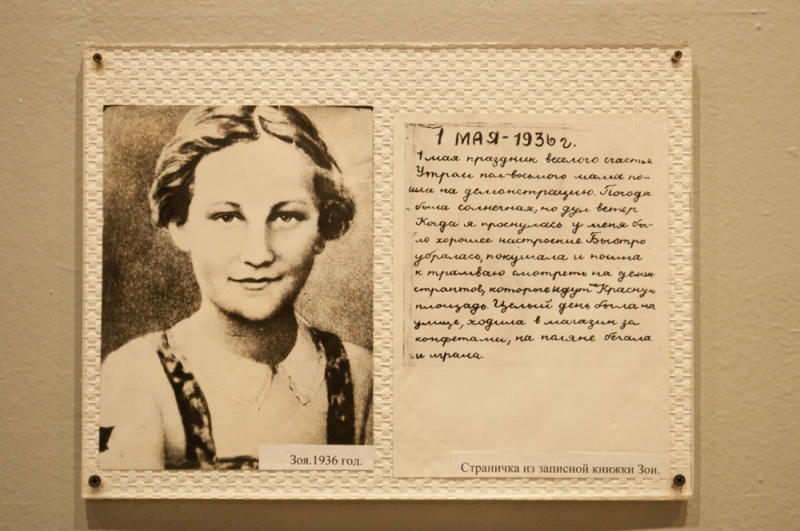 Зоя.1936 год.
1 МАЯ-1936г.
1 мая праздник веселого счастья
Утром пол-восьмого мама по-
шла на демонстрацию. Погода
была солнечная, но дул ветер
Когда я проснулась у меня бы-
ло хорошее настроение. Быстро
убралась, покушала и пошла
к трамваю смотреть на демон
странтов, которые идут на Красную
площадь. Целый день была на
улице, ходила в магазин за
конфетами, на поляне бегала
и играла.
Страничка из записной книжки Зои.